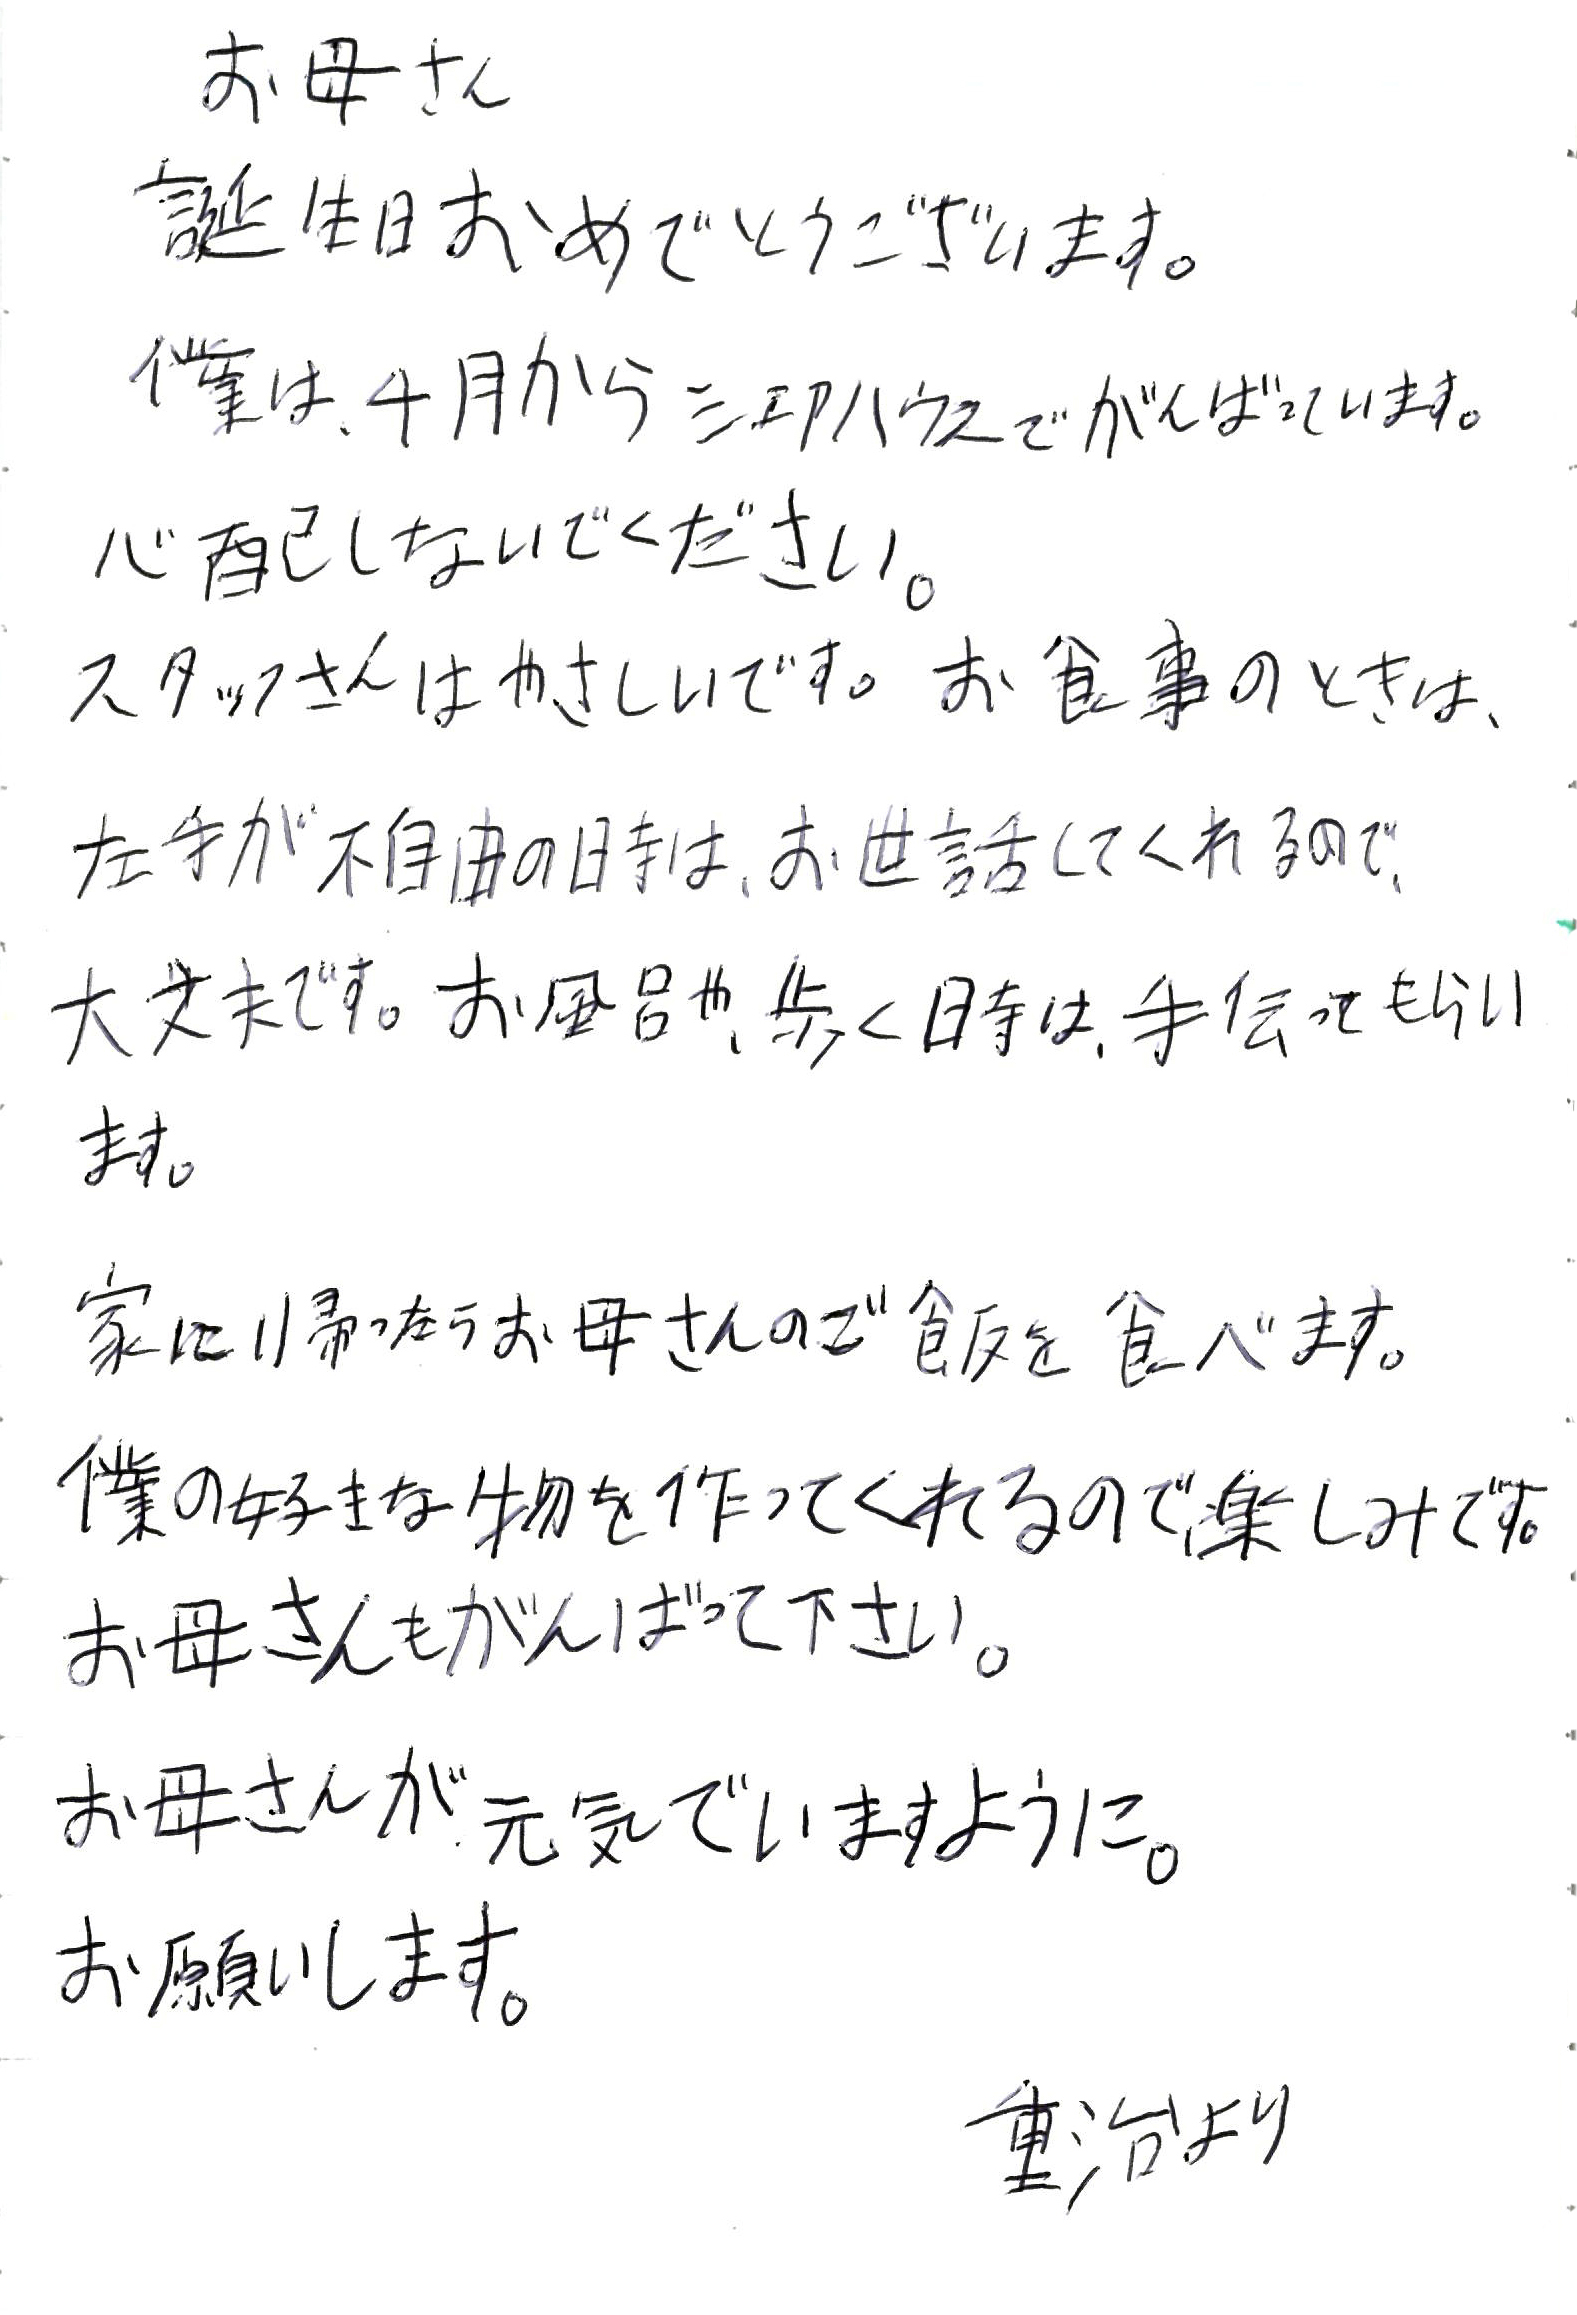 お母さん
誕生日おめでとうございます。
僕は、4月からシェアハウスでがんばっています。
心配しないでください。
スタッフさんはやさしいです。お食事のときは、
左手が不自由の時は、お世話してくれるので、
大丈夫です。お風呂や、歩く時は、手伝ってもらい
ます。
家に帰ったらお母さんのご飯を食べます。
僕の好きな物を作ってくれるので、楽しみです。
お母さんもがんばって下さい。
お母さんが元気でいますように。
お願いします。
重治より